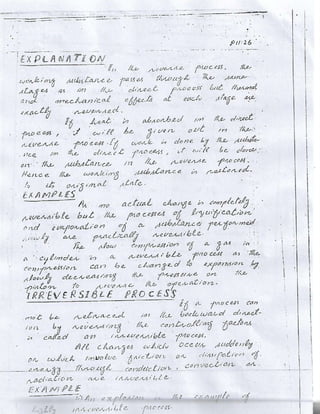 P11:26
EXPLANATION
In the reverse process, the
working substance passes through the same
stages as in the direct process but thermal
and mechanical effects at each stage are
exactly reversed.
If heat is absorbed in the direct
process, it will be given out in the
reverse process. If work is done by the substa-
nce in the direct process, it will be done
on the substance in the reverse process.
Hence the working substance is restored
to its original state.
EXAMPLES
As no actual change is completely
reversible but the processes of liquification
and evaporation of a substance performed
slowly are practically reversible
The slow compression of a gas in
a cylinder is a reversible process as the
compression can be changed to expansion by
slowly decreasing the pressure on the
piston to reverse the operation.
IRREVERSIBLE PROCESS
If a process can
not be retraced in the backward direct-
ion by reversing the controlling factors
is called an irreversible process.
All changes which occur suddenly
or which involve friction or dissipation of
energy through conduction, convection or
radiation are irreversible
EXAMPLE
An explosion the example of
highly irreversible process